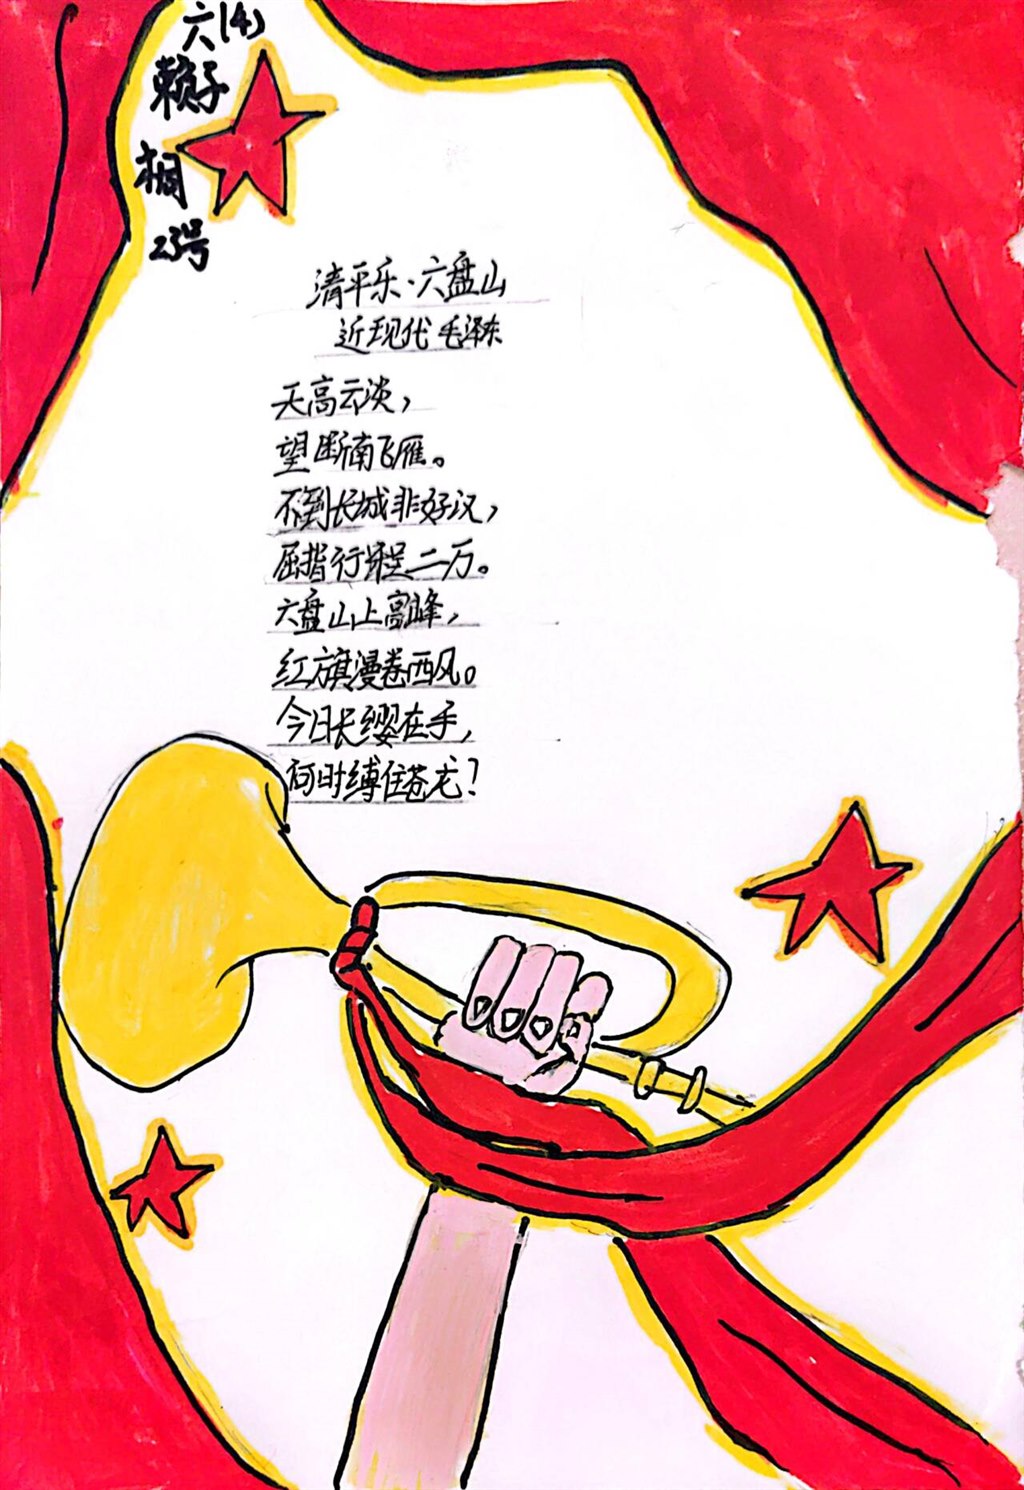 六(4)
赖子
桐
23号
清平乐·六盘山
近现代 毛泽东
天高云淡，
望断南飞雁。
不到长城非好汉，
屈指行程二万。
六盘山上高峰，
红旗漫卷西风。
今日长缨在手，
何时缚住苍龙？